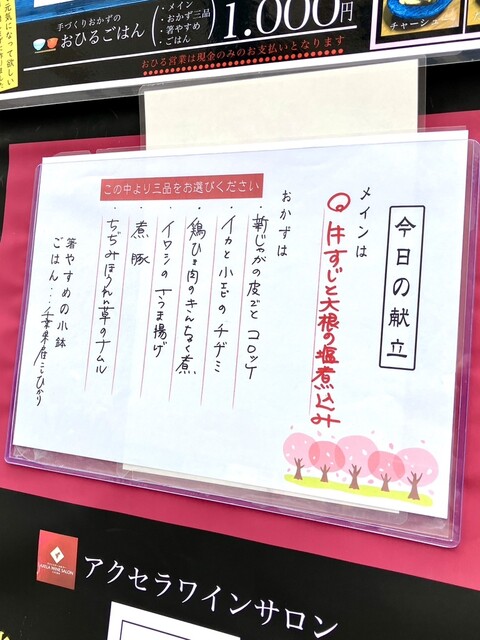 元気になって欲しい
手づくりおかずの
おひるごはん
・メイン
・おかず三品
・箸やすめ
・ごはん
1.000円
おひる営業は現金のみのお支払いとなります
チャーシュー
今日の献立
メインは
牛すじと大根の塩煮込み
おかずは
この中より三品をお選びください
・新じゃがの皮ごとコロッケ
・イカと小エビのチヂミ
・鶏ひき肉のきんちゃく煮
・イワシのうま揚げ
・煮豚
・ちぢみほうれん草のナムル
箸やすめの小鉢
ごはん…千葉県産こしひかり
アクセラワインサロン